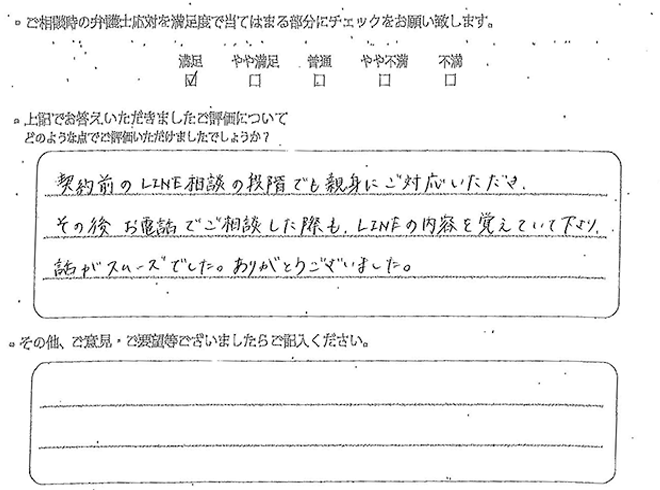 ご相談時の弁護士応対を満足度で当てはまる部分にチェックをお願い致します。
満足 やや満足 普通 やや不満 不満
☑ □ □ □ □
上記でお答えいただきましたご評価について
どのような点でご評価いただけましたでしょうか?
契約前のLINE相談の段階でも親身にご対応いただき、
その後お電話でご相談した際も、LINEの内容を覚えていて下さり、
話がスムーズでした。ありがとうございました。
その他、ご意見・ご要望等ございましたらご記入ください。